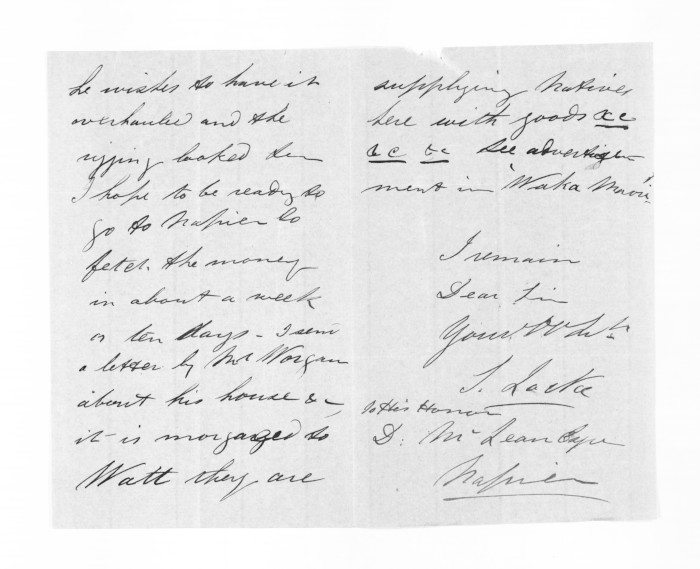 he wishes to have it
overhauled and the
rigging looked
I hope to be ready to
go to Napier to
fetch the money
in about a week
or ten days - I send
a letter by Mr Worgan
about his house &c,
it is morgaged to
Watt they are
supplying Natives
here with goods &c
&c &c See advertise-
ment in "Waka Maori"
I remain
Dear Sir
Your
S. Locke
To His Honor
D: McLean Esqre
Napier